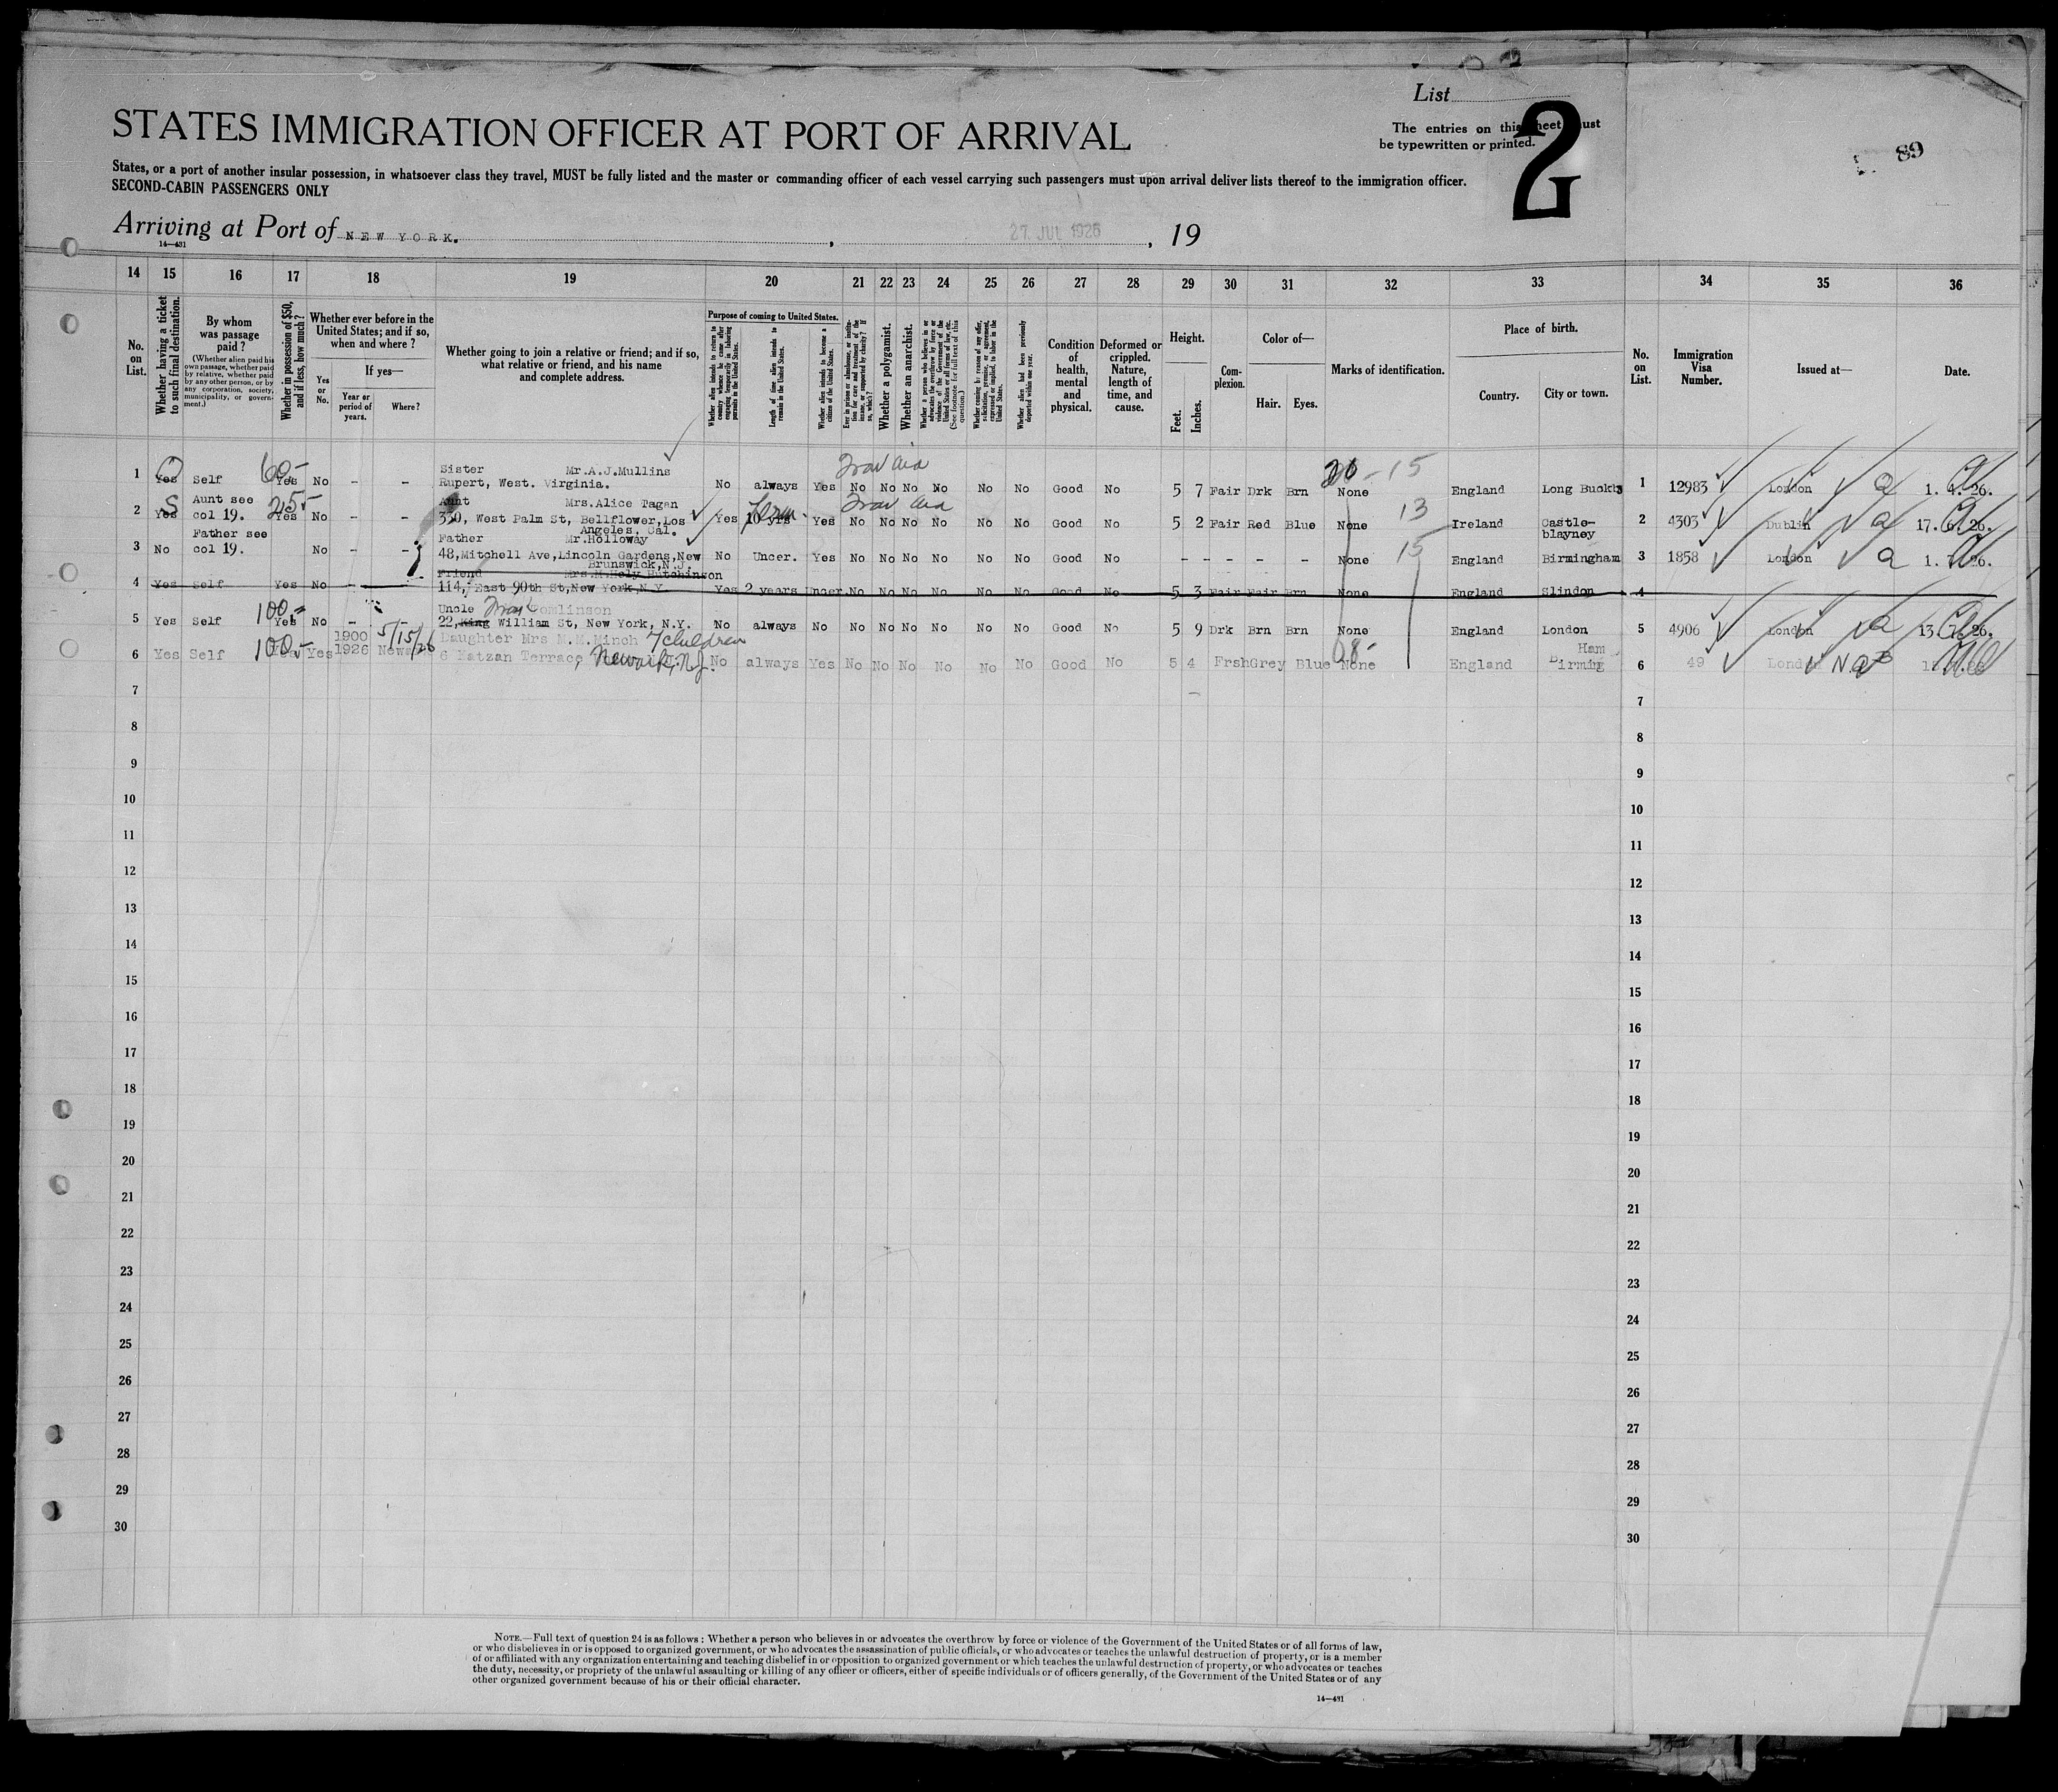 List
2
The entries on this sheet must
be typewritten or printed.
89
STATES IMMIGRATION OFFICER AT PORT OF ARRIVAL
States, or a port of another insular possession, in whatsoever class they travel, MUST be fully listed and the master or commanding officer of each vessel carrying such passengers must upon arrival deliver lists thereof to the immigration officer.
SECOND-CABIN PASSENGERS ONLY
Arriving at Port of NEW YORK. , 27 JUL 1926 , 19
14—431
14 15 16 17 18 19 20 21 22 23 24 25 26 27 28 29 30 31 32 33 34 35 36
No. on List.
Whether having a ticket to such final destination.
By whom was passage paid?
(Whether alien paid his own passage, whether paid by relative, whether paid by any other person, or by any corporation, society, municipality, or government.)
Whether in possession of $50, and if less, how much?
Whether ever before in the United States; and if so, when and where?
Yes or No.
If yes—
Year or period of years.
Where?
Whether going to join a relative or friend; and if so, what relative or friend, and his name and complete address.
Purpose of coming to United States.
Whether alien intends to return to country whence he came after engaging temporarily in laboring pursuits in the United States.
Length of time alien intends to remain in the United States.
Whether alien intends to become a citizen of the United States.
Ever in prison or almshouse, or institution for care and treatment of the insane, or supported by charity? If so, which?
Whether a polygamist.
Whether an anarchist.
Whether a person who believes in or advocates the overthrow by force or violence of the Government of the United States or all forms of law, etc. (See footnote for full text of this question.)
Whether coming by reason of any offer, solicitation, promise, or agreement, expressed or implied, to labor in the United States.
Whether alien had been previously deported within one year.
Condition of health, mental and physical.
Deformed or crippled. Nature, length of time, and cause.
Height.
Feet. Inches.
Complexion.
Color of—
Hair. Eyes.
Marks of identification.
Place of birth.
Country. City or town.
No. on List.
Immigration Visa Number.
Issued at—
Date.
Trav aid
20 - 15
1 Yes Self 60- Yes No - - Sister Mr.A.J.Mullins
Rupert, West. Virginia. No always Yes No No No No No No Good No 5 7 Fair Drk Brn None England Long Buckby 1 12983 London 1. 4. 26.
Trav aid
13
2 S Yes Aunt see 25- Aunt Mrs.Alice Tagan
col 19. Yes No - - 330, West Palm St, Bellflower,Los Yes 10 yrs Perm. Yes No No No No No No Good No 5 2 Fair Red Blue None Ireland Castle-
Angeles, Cal. blayney 2 4303 Dublin 17. 6. 26.
Father see Father Mr.Holloway 15
3 No col 19. No - - 48,Mitchell Ave,Lincoln Gardens,New No Uncer. Yes No No No No No No Good No - - - - - None England Birmingham 3 1858 London 1. 7. 26.
Brunswick,N.J.
Friend Mrs.M.Hely Hutchinson
4 Yes Self Yes No - - 114, East 90th St,New York,N.Y. Yes 2 years Uncer.No No No No No No Good No 5 3 Fair Fair Brn None England Slindon 4
100- Uncle Tomlinson
5 Yes Self Yes No - 22,King William St, New York, N.Y. No always No No No No No No No Good No 5 9 Drk Brn Brn None England London 5 4906 London 13. 7. 26.
100- 1900 5/15/26 Daughter Mrs M.M.Minch 7 children 08- Ham
6 Yes Self Yes Yes 1926 Newark 6 Katzan Terrace, Newark, N.J. No always Yes No No No No No No Good No 5 4 Frsh Grey Blue None England Birming 6 49 London
7 7
8 8
9 9
10 10
11 11
12 12
13 13
14 14
15 15
16 16
17 17
18 18
19 19
20 20
21 21
22 22
23 23
24 24
25 25
26 26
27 27
28 28
29 29
30 30
NOTE.—Full text of question 24 is as follows: Whether a person who believes in or advocates the overthrow by force or violence of the Government of the United States or of all forms of law,
or who disbelieves in or is opposed to organized government, or who advocates the assassination of public officials, or who advocates or teaches the unlawful destruction of property, or is a member
of or affiliated with any organization entertaining and teaching disbelief in or opposition to organized government or which teaches the unlawful destruction of property, or who advocates or teaches
the duty, necessity, or propriety of the unlawful assaulting or killing of any officer or officers, either of specific individuals or of officers generally, of the Government of the United States or of any
other organized government because of his or their official character.
14—431